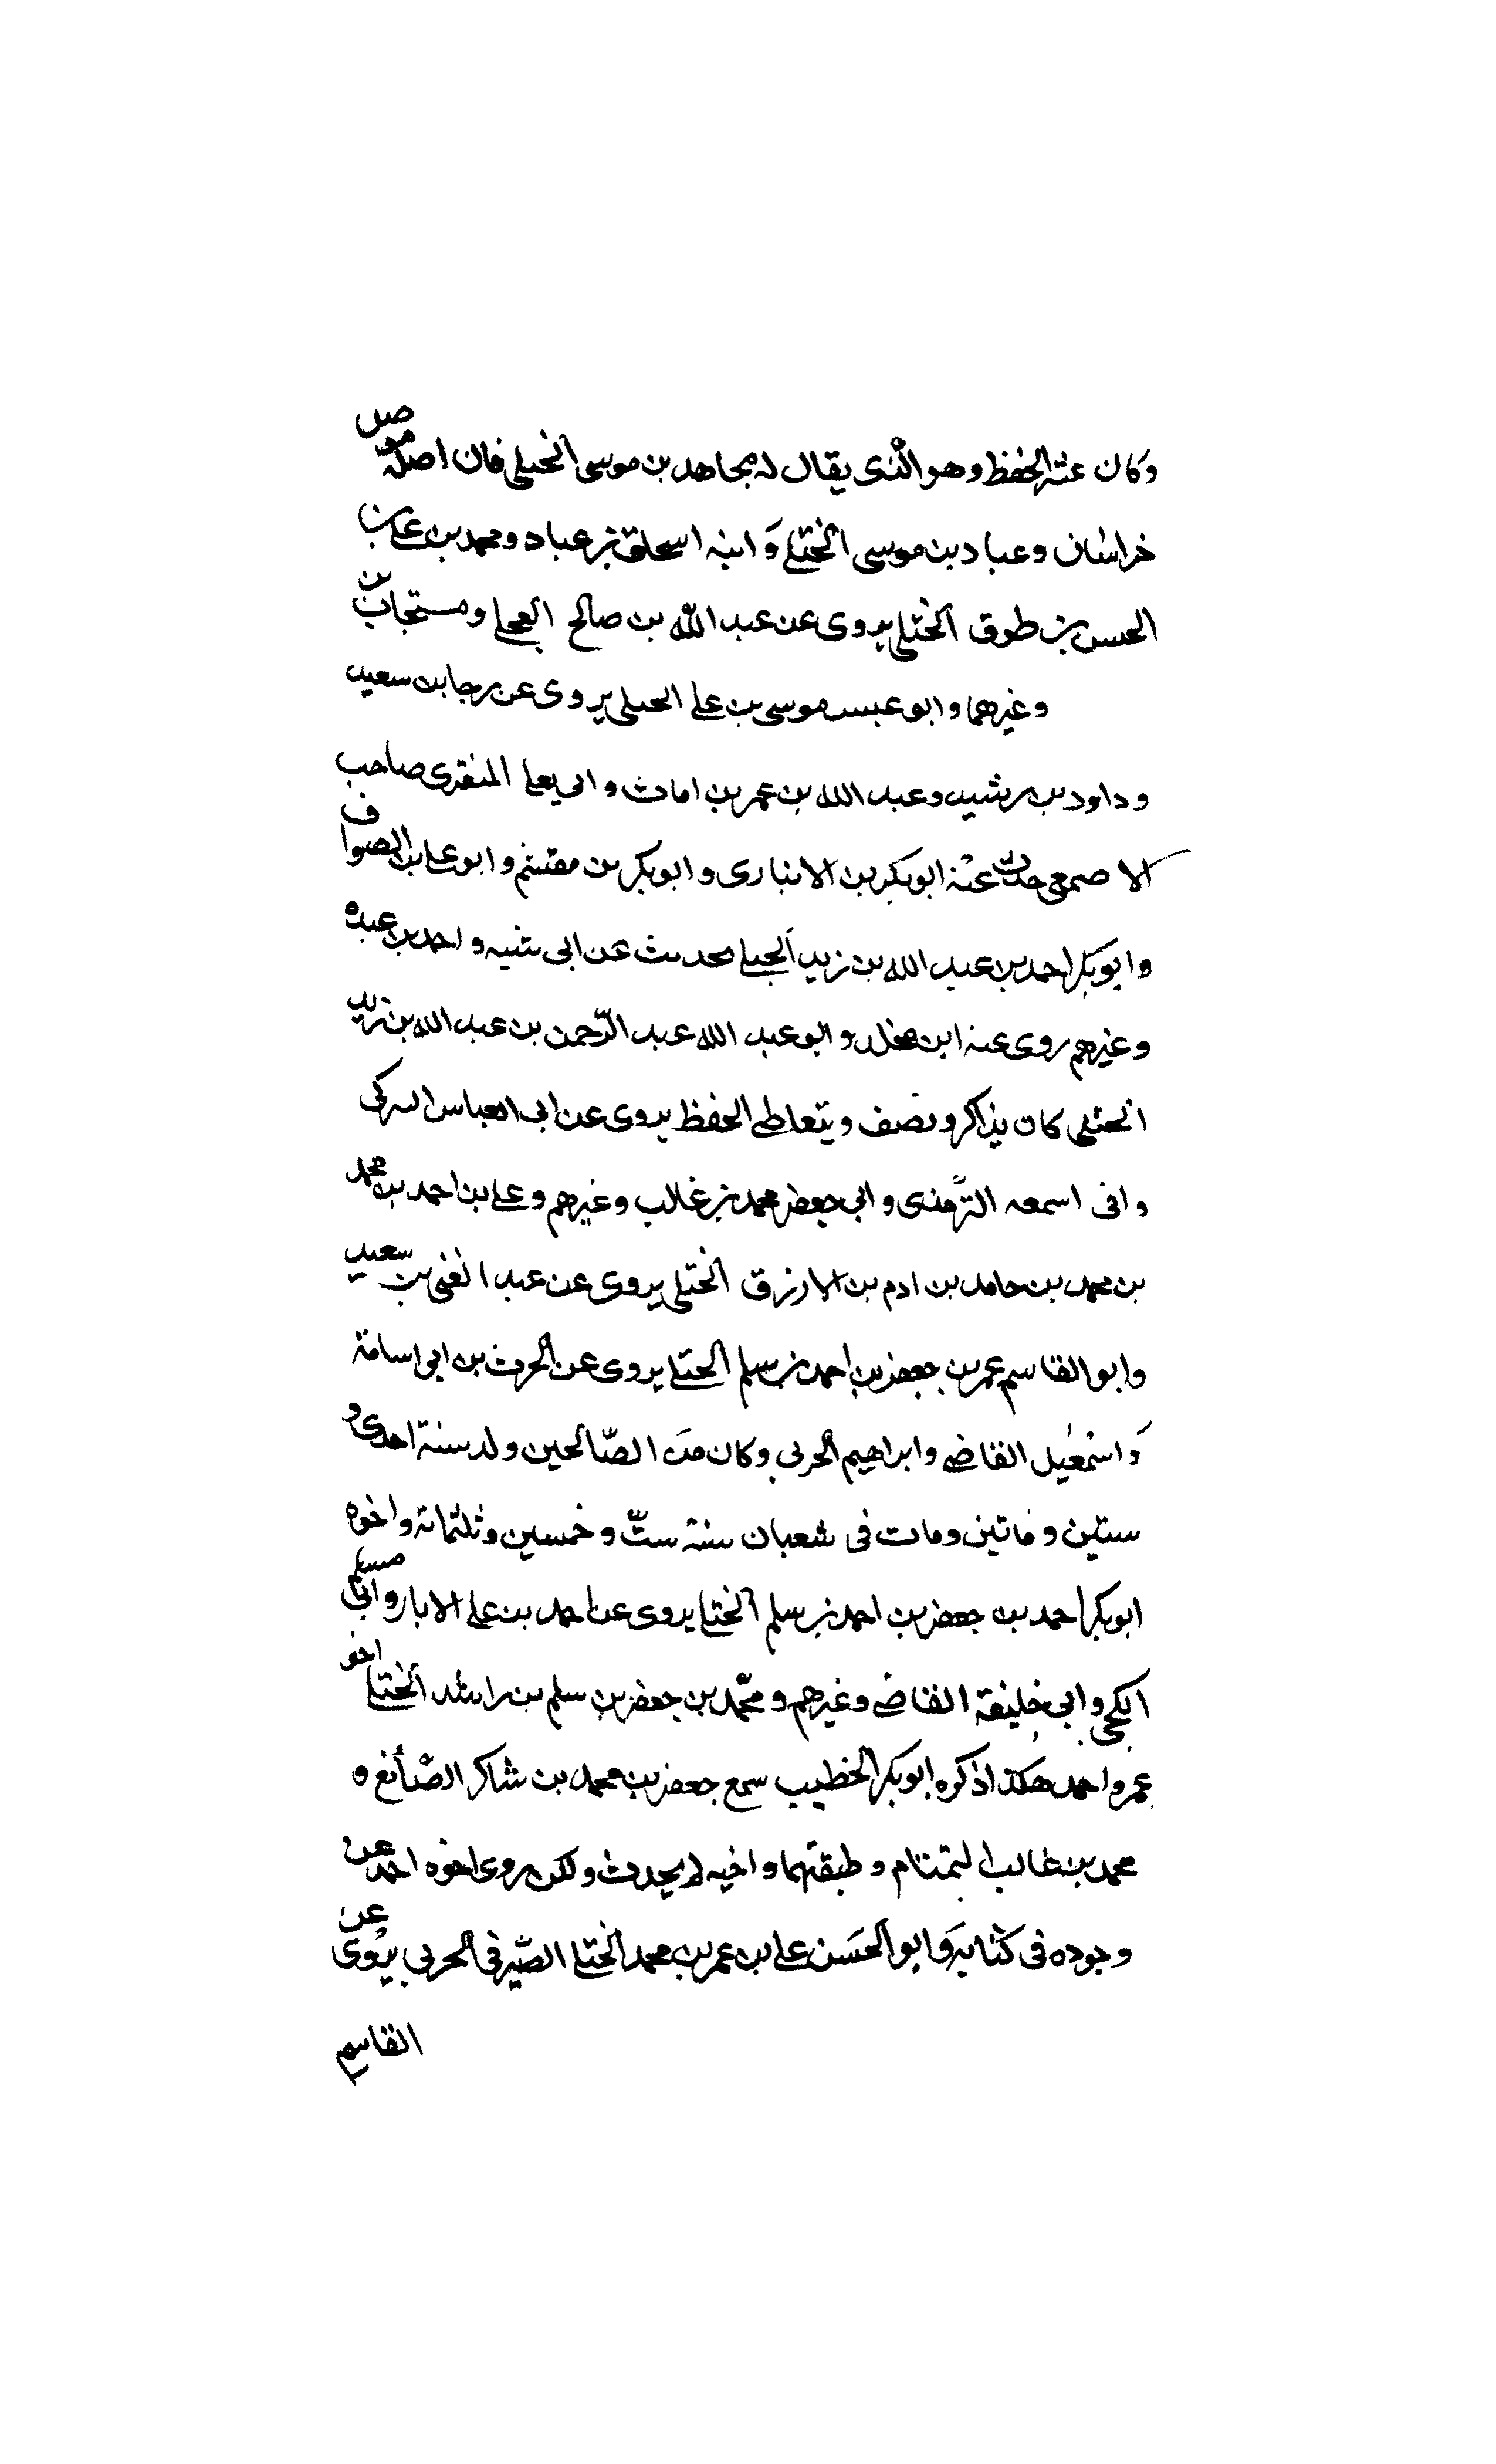 وكان عنه الحفظ وهو الذى يقال له مجاهد بن موسى الختلى فان اصله من
خراسان وعباد بن موسى الختلى وابنه اسحاق بن عباد ومحمد بن على بن
الحسن بن طوق الختلى يروى عن عبد الله بن صالح العجلى ومستجاب بن
وغيرهما وابو عيسى موسى بن على الختلى يروى عن رجا بن سعيد
وداود بن رشيد وعبد الله بن عمر بن امان وابى يعلى المنقرى صاحب
الاصمعى حدث عنه ابو بكر بن الانبارى وابو بكر بن مقسم وابو على بن الصواف
وابو بكر احمد بن عبد الله بن زيد الختلى يحدث عن ابى شيبه واحمد بن عبده
وغيرهم روى عنه ابن مخلد وابو عبد الله عبد الرحمن بن عبد الله بن زيد
الختلى كان يذاكر ويصنف ويتعاطى الحفظ يروى عن ابى العباس البركى
وابى اسمعيل الترمذى وابى جعفر محمد بن غالب وغيرهم وعلى بن احمد بن محمد
بن محمد بن حامد بن ادم بن الازرق الختلى يروى عن عبد الغنى بن سعيد
وابو القاسم عمر بن جعفر بن احمد بن سلم الختلى يروى عن الحرث بن ابى اسامة
واسمعيل القاضى وابراهيم الحربى وكان من الصالحين ولد سنة احدى و
ستين وماتين ومات فى شعبان سنة ست وخمسين وثلثمائة واخوه
ابو بكر احمد بن جعفر بن احمد بن سلم الختلى يروى عن احمد بن على الابار وابى مسلم
الكجى وابى خليفة القاضى وغيرهم ومحمد بن جعفر بن سلم بن راشد الختلى اخو
عمر واحمد هكذا ذكره ابو بكر الخطيب سمع جعفر بن محمد بن شاكر الصائغ و
محمد بن غالب التمتام وطبقتهما واخيه لا يحدث ولكن روى اخوه احمد عن
وجوده فى كتابه وابو الحسن على بن عمر بن محمد الختلى الصيرفى الحربى يروى عن
القاسم